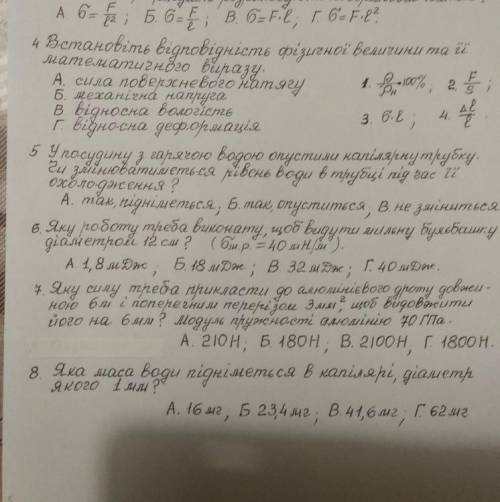 А. σ = F/l²; Б. σ = F/l; В. σ = F·l; Г. σ = F·l².
4 Встановіть відповідність фізичної величини та її
математичного виразу.
А. сила поверхневого натягу
Б. механічна напруга
В. відносна вологість
Г. відносна деформація
1. ρ/ρн·100%, 2. F/S;
3. σ·l; 4. Δl/l.
5 У посудину з гарячою водою опустили капілярну трубку.
Чи змінюватиметься рівень води в трубці під час її
охолодження?
А. так, підніметься; Б. так, опуститься, В. не зміниться
6. Яку роботу треба виконати, щоб видути мильну бульбашку
діаметром 12 см? (σм.р. = 40 мН/м).
А. 1,8 мДж; Б. 18 мДж; В. 32 мДж; Г. 40 мДж.
7. Яку силу треба прикласти до алюмінієвого дроту довжи-
ною 6м і поперечним перерізом 3мм², щоб видовжити
його на 6 мм? Модуль пружності алюмінію 70 ГПа.
А. 210Н, Б. 180Н; В. 2100Н, Г. 1800Н.
8. Яка маса води підніметься в капілярі, діаметр
якого 1 мм?
А. 16 мг, Б 23,4 мг; В. 41,6 мг; Г. 62 мг